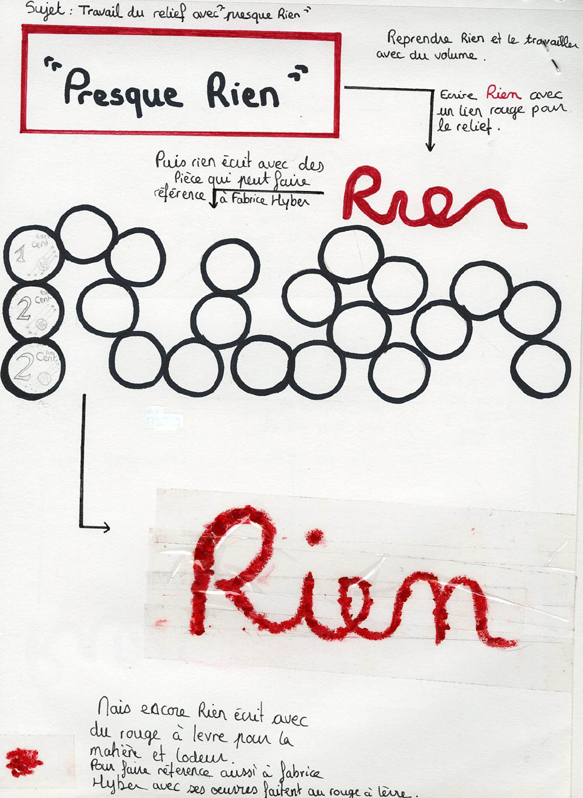 Sujet : Travail du relief avec "presque Rien"
"Presque Rien"
Reprendre Rien et le travailler
avec du volume.
Ecrire Rien avec
un lien rouge pour
le relief.
Puis rien écrit avec des
Pièce qui peut faire
référence à Fabrice Hyber
Rien
1 Cent
2 Cent
2 Cent
Rien
Mais encore Rien écrit avec
du rouge à levre pour la
matière et lodeur.
Pour faire référence aussi à fabrice
Hyber avec ses oeuvres faitent au rouge à lèvre.